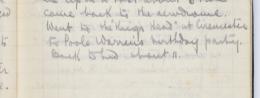 come back to the aerodrome.
Went to the "Kings Head" at Cirencester
to Poole Warren's birthday party.
Back to bed about 11.